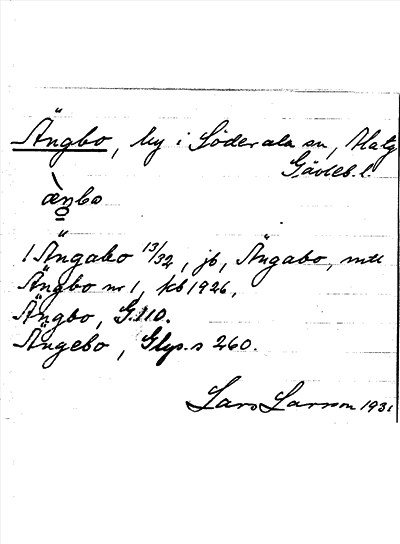 Ängbo, by i Söderala sn, Hälsg
Gävleb. l.
æŋbo
1 Ängabo 13/32, jb, Ängabo, mtl
Ängbo nr 1, kb 1926,
Ängbo, G. 110.
Ängebo, Glys. s 260.
Lars Larsson 1931